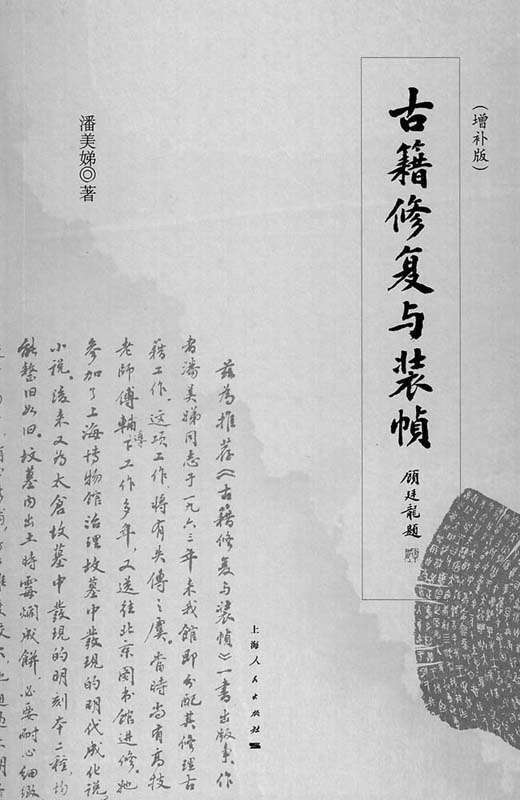 （增补版）
古籍修复与装帧
顾廷龙题
潘美娣◎著
上海人民出版社
兹为推荐《古籍修复与装帧》一书出版事，作
者潘美娣同志于一九六三年来我馆即分配其修理古
籍工作。这项工作，将有失傅之虞。当时尚有高技
老师傅辅导下工作多年，又送往北京图书馆进修。她
参加了上海博物馆治理故墓中發现的明代成化说
小说。後来又为太仓故墓中發现的明刻本二种，均
能整旧如旧。坟墓内出土時霉爛成餅，必要耐心细緻